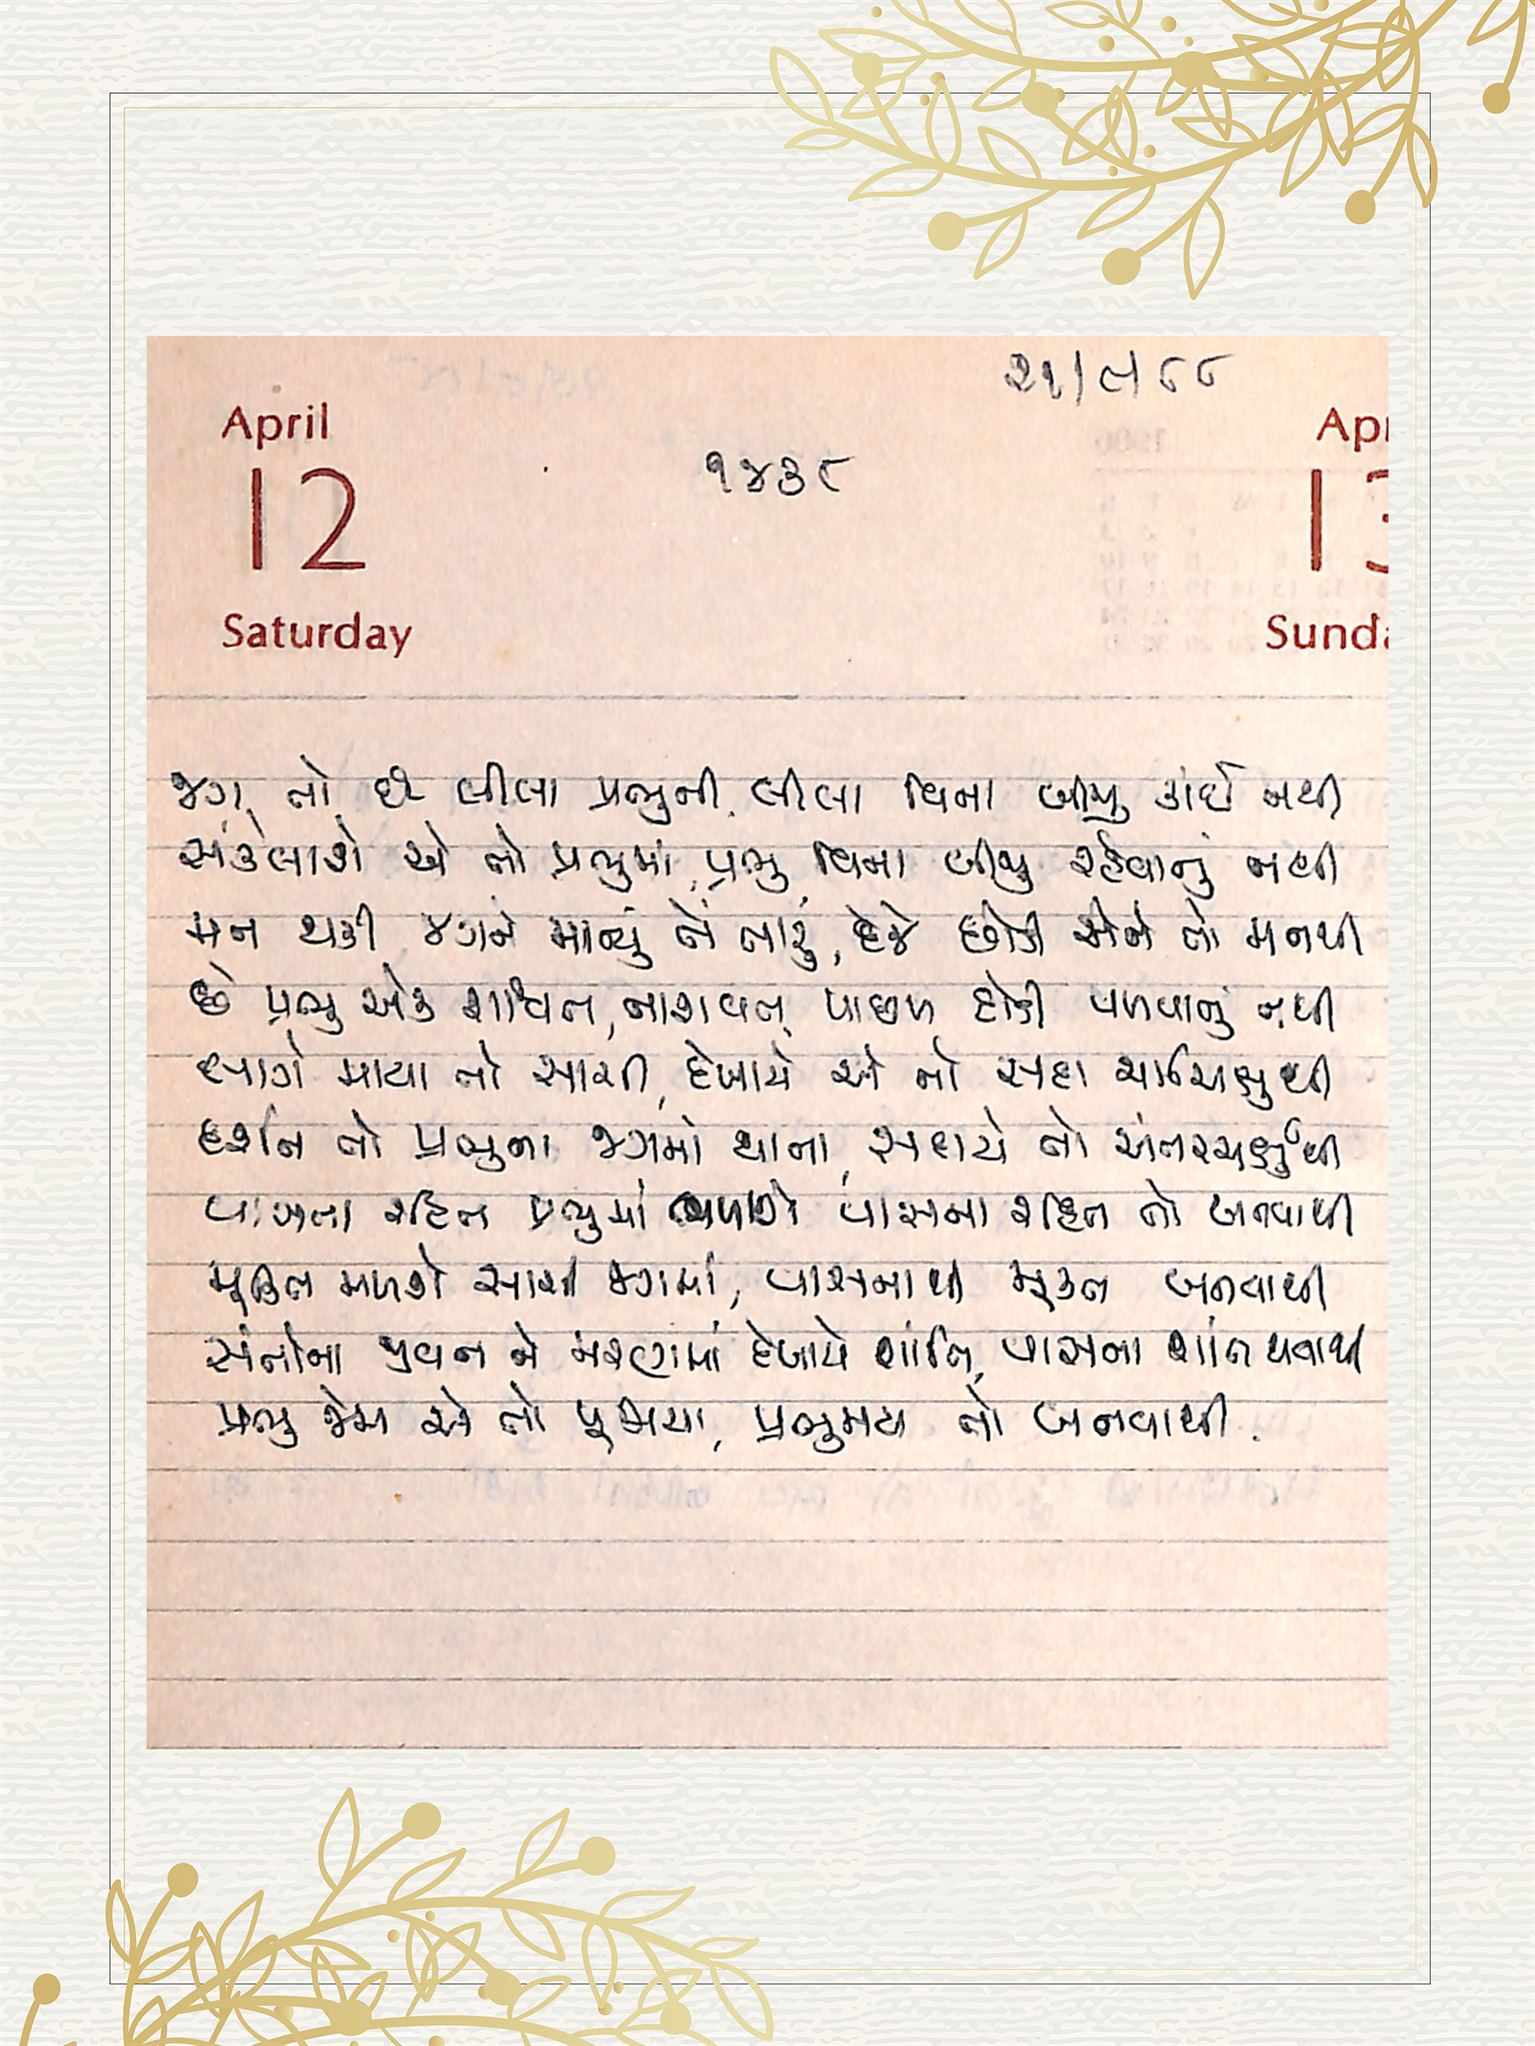 ૨૧/૮/૮૮
April
12
Saturday
૧૪૩૮
Apr
13
Sunda
જગ તો છે લીલા પ્રભુની, લીલા વિના બીજુ કાંઈ નથી
સંકેલાશે એ તો પ્રભુમાં, પ્રભુ વિના બીજુ રહેવાનું નથી
મન થકી જગને માન્યું તેં તારું, દેજે છોડી એને તો મનથી
છે પ્રભુ એક શાશ્વત, નાશવંત પાછળ દોડી વળવાનું નથી
લાગે માયા તો સાચી, દેખાયે એ તો સદા ચર્મચક્ષુથી
દર્શન તો પ્રભુના જગમાં થાતા, સદાયે તો અંતરચક્ષુથી
વાસના રહિત પ્રભુમાં ભળાશે વાસના રહિત તો બનવાથી
મુક્તિ મળશે સાચી જગમાં, વાસનાથી મુક્ત બનવાથી
સંતોના જીવન ને મરણમાં દેખાયે શાંતિ, વાસના શાંત થવાથી
પ્રભુ જેમ એ તો પૂજાયા, પ્રભુમય તો બનવાથી.